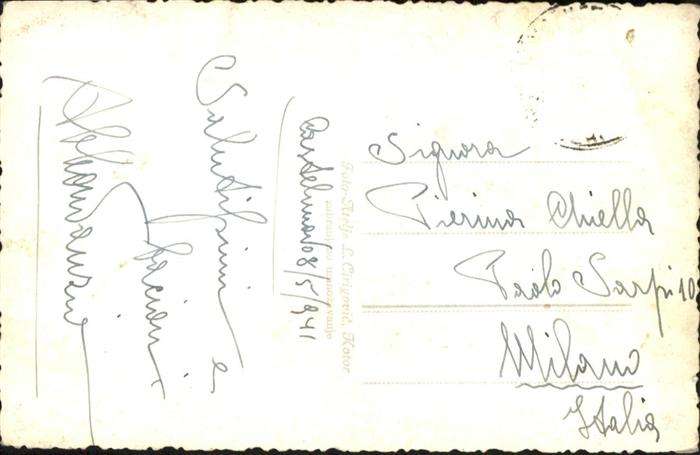 Castelnuovo 8/5/941
Salutissimi e
bacioni
Foto-Atelje L. Cirigović, Kotor
Signora
Pierina Chiella
Paolo Sarpi 10
Milano
Italia